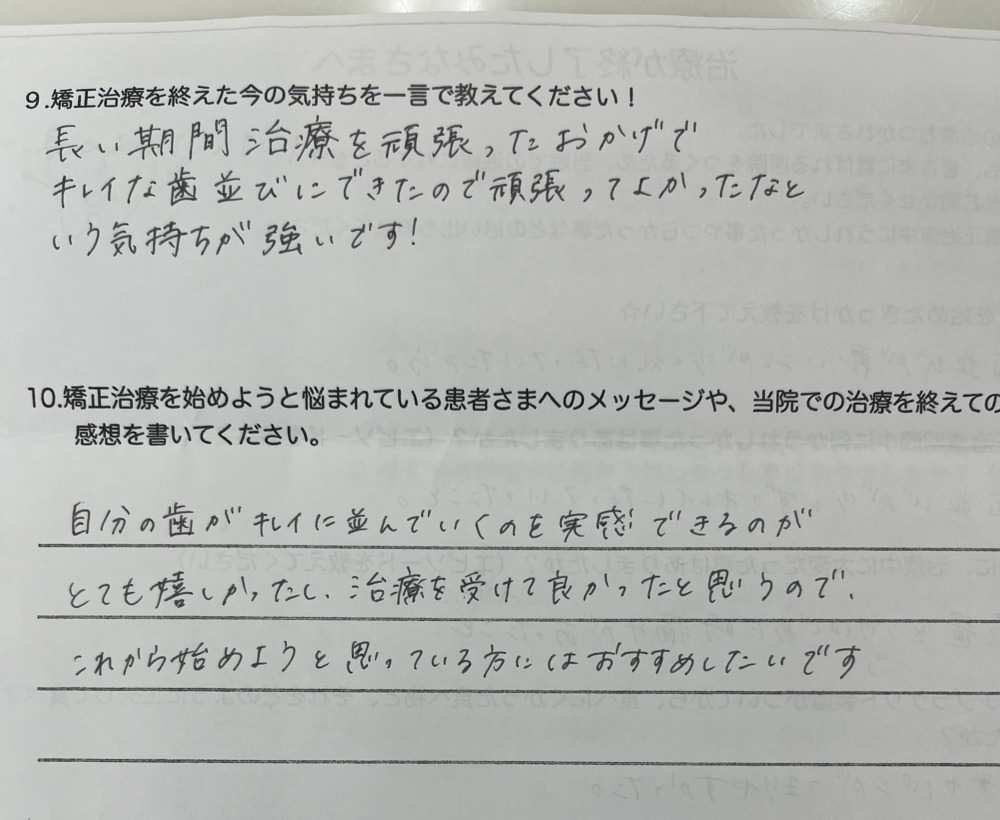 9.矯正治療を終えた今の気持ちを一言で教えてください！
長い期間治療を頑張ったおかげで
キレイな歯並びにできたので頑張ってよかったなと
いう気持ちが強いです!
10.矯正治療を始めようと悩まれている患者さまへのメッセージや、当院での治療を終えての
感想を書いてください。
自分の歯がキレイに並んでいくのを実感できるのが
とても嬉しかったし、治療を受けて良かったと思うので、
これから始めようと思っている方にはおすすめしたいです